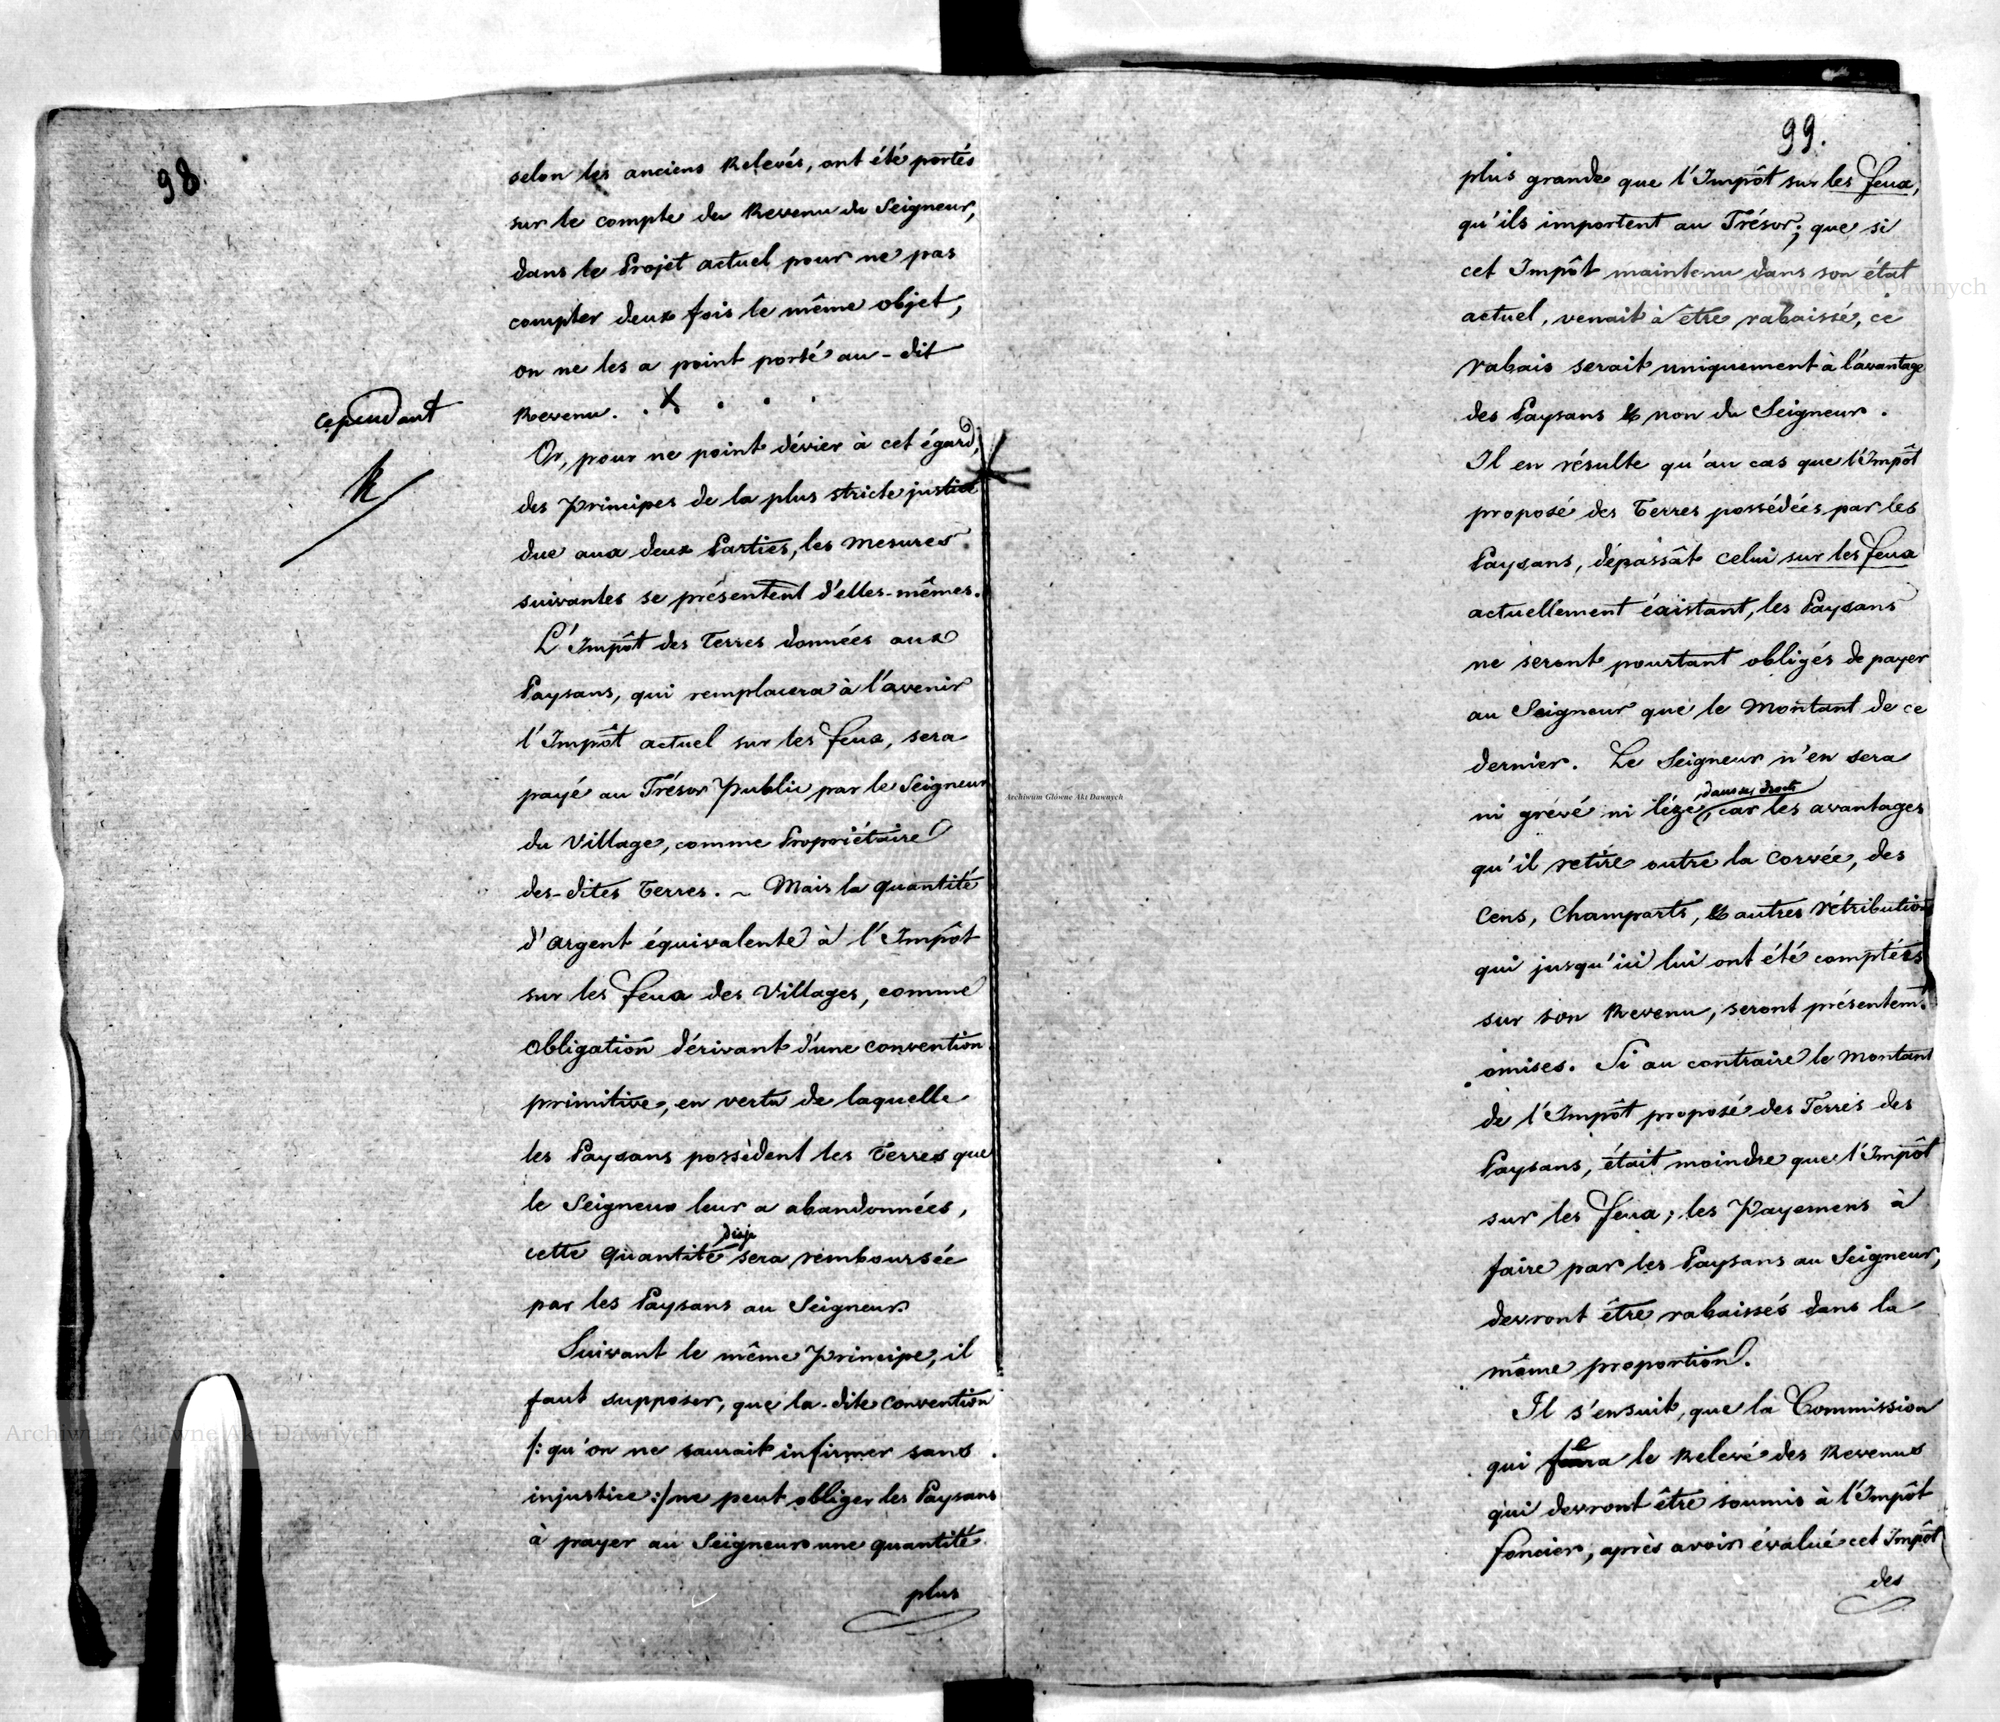 98.
selon les anciens Relevés, ont été portés
sur le compte du Revenu du Seigneur,
dans le Projet actuel pour ne pas
compter deux fois le même objet,
on ne les a point porté au-dit
Revenu. . X . . .
cependant
Or, pour ne point dévier à cet égard,
des Principes de la plus stricte justice
due aux deux Parties, les mesures
suivantes se présentent d'elles-mêmes.
L'Impôt des Terres données aux
Paysans, qui remplacera à l'avenir
l'Impôt actuel sur les feux, sera
payé au Trésor Public par le Seigneur
du Village, comme Propriétaire
des-dites Terres. ~ Mais la quantité
d'argent équivalente à l'Impôt
sur les feux des Villages, comme
obligation dérivant d'une convention
primitive, en vertu de laquelle
les Paysans possèdent les Terres que
le Seigneur leur a abandonnées,
disje
cette quantité sera remboursée
par les Paysans au Seigneur.
Suivant le même Principe, il
faut supposer, que la-dite convention
/: qu'on ne saurait infirmer sans
injustice :/ ne peut obliger les Paysans
à payer au Seigneur une quantité
plus
99.
plus grande que l'Impôt sur les feux,
qu'ils importent au Trésor; que si
cet Impôt maintenu dans son état
actuel, venait à être rabaissé, ce
rabais serait uniquement à l'avantage
des Paysans & non du Seigneur.
Il en résulte qu'au cas que l'Impôt
proposé des Terres possédées par les
Paysans, dépassât celui sur les feux
actuellement éxistant, les Paysans
ne seront pourtant obligés de payer
au Seigneur que le Montant de ce
dernier. Le Seigneur n'en sera
dans ses droits
ni grévé ni lézé, car les avantages
qu'il retire outre la Corvée, des
Cens, Champarts, & autres rétributions
qui jusqu'ici lui ont été comptées
sur son Revenu, seront présentem.
omises. Si au contraire le Montant
de l'Impôt proposé des Terres des
Paysans, était moindre que l'Impôt
sur les feux; les Payemens à
faire par les Paysans au Seigneur,
devront être rabaissés dans la
même proportion.
Il s'ensuit, que la Commission
qui fera le Relevé des Revenus
qui devront être soumis à l'Impôt
foncier, après avoir évalué cet Impôt
des
Archiwum Główne Akt Dawnych
Archiwum Główne Akt Dawnych
Archiwum Główne Akt Dawnych